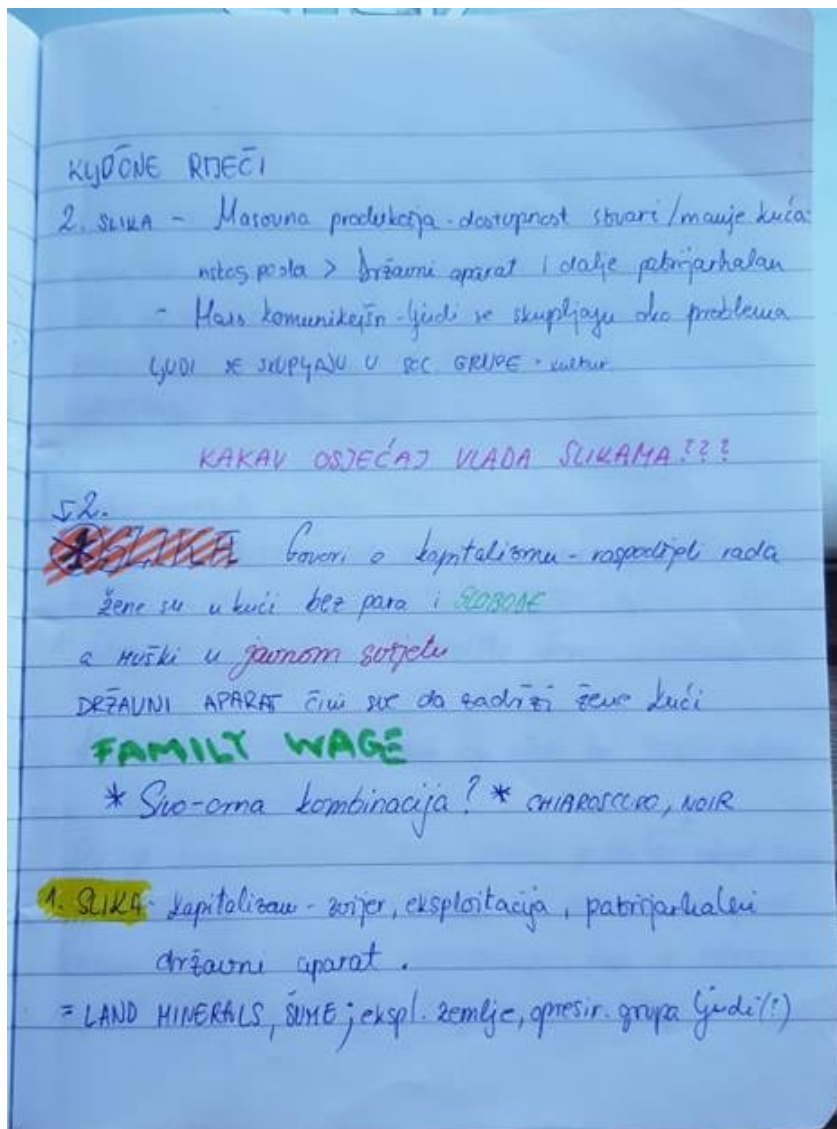 KLJUČNE RIJEČI
2. SLIKA - Masovna produkcija - dostupnost stvari / manje kućan-
skog posla > Državni aparat i dalje patrijarhalan
- Mass komunikejšn - ljudi se skupljaju oko problema
LJUDI SE SKUPLJAJU U SOC. GRUPE - kultur.
KAKAV OSJEĆAJ VLADA SLIKAMA???
2.
SLIKA Govori o kapitalizmu - raspodijeli rada
žene su u kući bez para i SLOBODE
a MUŠKI u javnom svijetu
DRŽAVNI APARAT čini sve da zadrži žene kući
FAMILY WAGE
* Sivo-crna kombinacija? * CHIAROSCURO, NOIR
1. SLIKA - kapitalizam - zvijer, eksploitacija, patrijarhalni
državni aparat.
= LAND MINERALS, ŠUME; ekspl. zemlje, opresir. grupa ljudi (?)